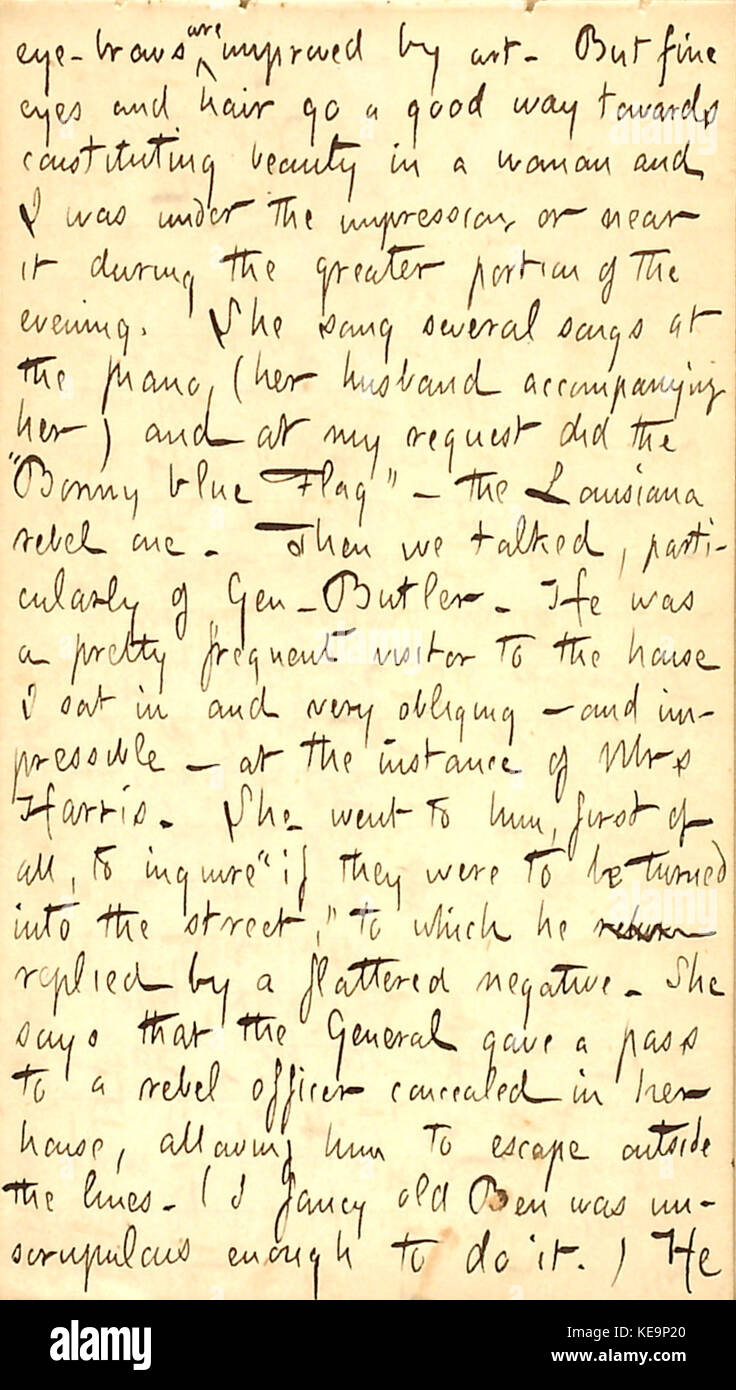 eye-brows are improved by art. But fine
eyes and hair go a good way towards
constituting beauty in a woman and
I was under the impression, or near
it during the greater portion of the
evening. She sang several songs at
the piano, (her husband accompanying
her) and at my request did the
"Bonny blue Flag" — the Louisiana
rebel one. Then we talked, parti-
cularly of Gen. Butler. He was
a pretty frequent visitor to the house
I sat in and very obliging — and im-
pressible — at the instance of Mrs
Harris. She went to him, first of
all, to inquire "if they were to be turned
into the street," to which he
replied by a flattered negative. She
says that the General gave a pass
to a rebel officer concealed in her
house, allowing him to escape outside
the lines. (I fancy old Ben was un-
scrupulous enough to do it.) He
alamy
alamy
alamy
alamy
Image ID: KE9P20
www.alamy.com